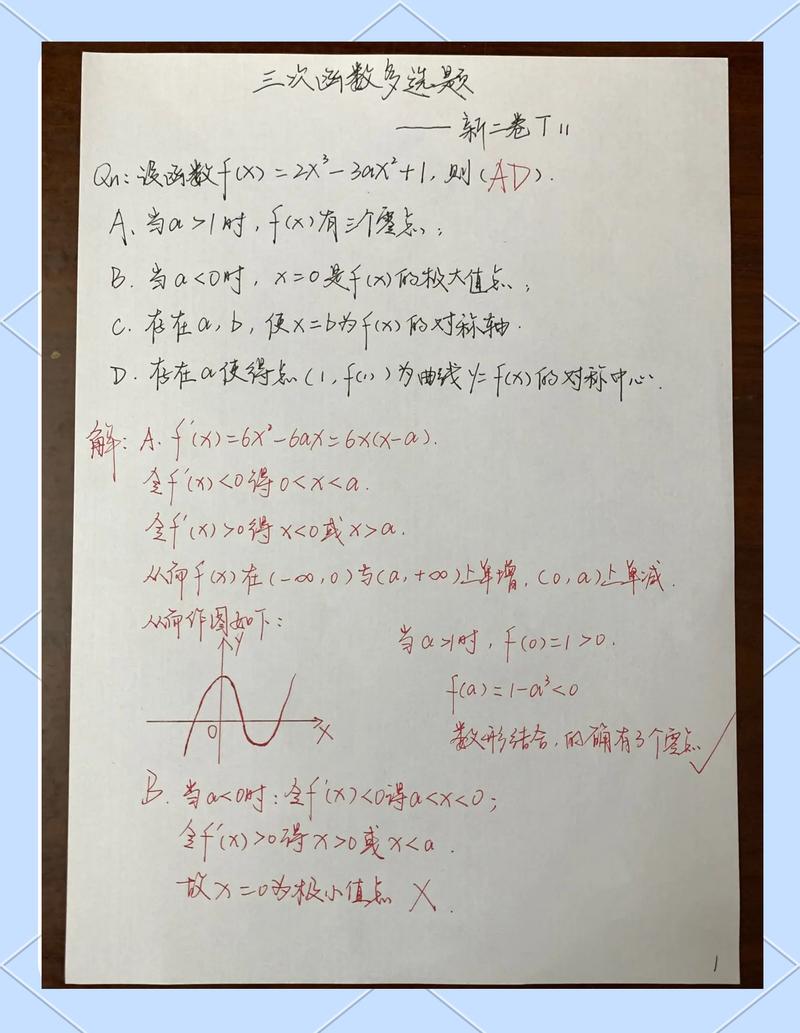 三次函数多选题
—— 新二卷T11
Q11:设函数f(x)=2x³-3ax²+1,则(AD).
A. 当a>1时,f(x)有三个零点;
B. 当a<0时,x=0是f(x)的极大值点;
C. 存在a,b,使x=b为f(x)的对称轴.
D. 存在a使得点(1,f(1))为曲线y=f(x)的对称中心.
解:A. f'(x)=6x²-6ax=6x(x-a).
令f'(x)<0得0<x<a.
令f'(x)>0得x<0或x>a.
从而f(x)在(-∞,0)与(a,+∞)上单增,(0,a)上单减.
从而作图如下:
y
O
x
当a>1时,f(0)=1>0.
f(a)=1-a³<0
数形结合,的确有3个零点✓
B. 当a<0时:令f'(x)<0得a<x<0;
令f'(x)>0得x>0或x<a.
故x=0为极小值点 ×.
1